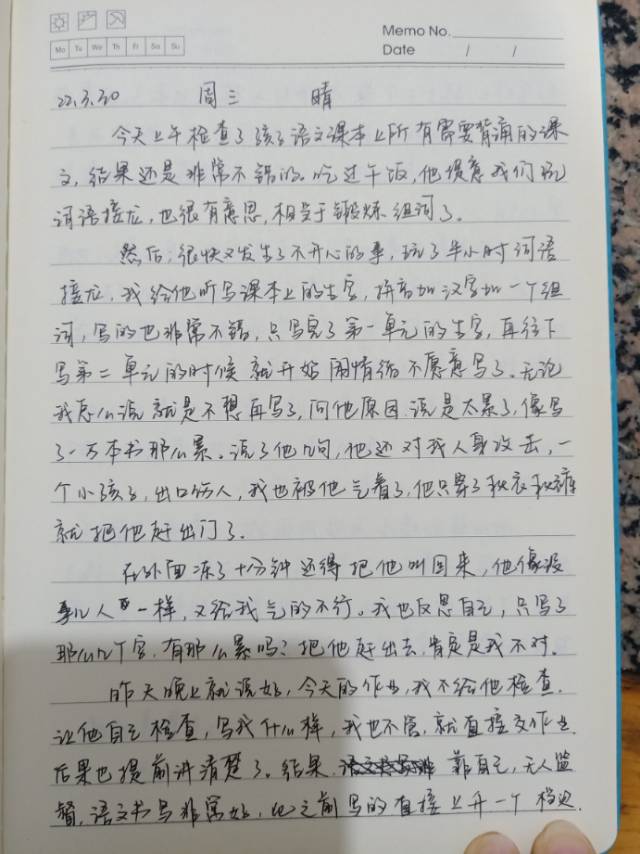 Memo No.
Mo Tu We Th Fr Sa Su
Date / /
22.3.30 周三 晴
今天上午检查了孩子语文课本上所有需要背诵的课
文,结果还是非常不错的。吃过午饭,他愿意我们玩
词语接龙,也很有意思,相当于锻炼组词了。
然后,很快又发生了不开心的事,玩了半小时词语
接龙,我给他听写课本上的生字,拼音加汉字加一个组
词,写的也非常不错,只写完了第一单元的生字,再往下
写第二单元的时候就开始闹情绪不愿意写了。无论
我怎么说就是不想再写了,问他原因说是太累了,像写
了一万本书那么累。说了他几句,他还对我人身攻击,一
个小孩子,出口伤人,我也被他气着了,他只穿了秋衣秋裤
就把他赶出门了。
在外面冻了十分钟还得把他叫回来,他像没
事儿人一样,又给我气的不行。我也反思自己,只写了
那么几个字,有那么累吗?把他赶出去,肯定是我不对.
昨天晚上就说好,今天的作业,我不给他检查.
让他自己检查,写成什么样,我也不管,就直接交作业.
后果也提前讲清楚了。结果,靠自己,无人监
督,语文书写非常好,比之前写的直接上升一个档次.